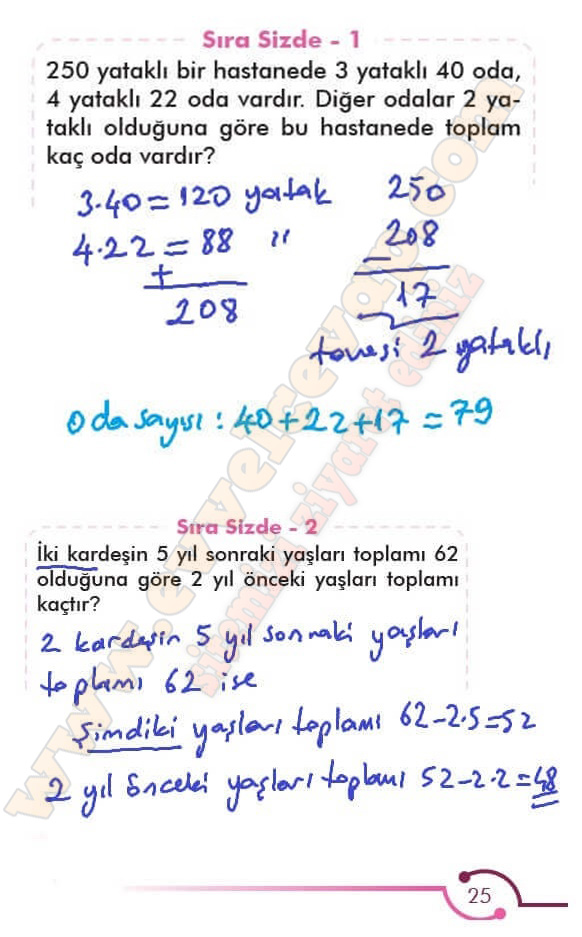 Sıra Sizde - 1
250 yataklı bir hastanede 3 yataklı 40 oda,
4 yataklı 22 oda vardır. Diğer odalar 2 ya-
taklı olduğuna göre bu hastanede toplam
kaç oda vardır?
3·40=120 yatak
4·22=88 "
+
208
250
208
-
17
tanesi 2 yataklı
Oda sayısı: 40+22+17=79
Sıra Sizde - 2
İki kardeşin 5 yıl sonraki yaşları toplamı 62
olduğuna göre 2 yıl önceki yaşları toplamı
kaçtır?
2 kardeşin 5 yıl sonraki yaşları
toplamı 62 ise
Şimdiki yaşları toplamı 62-2·5=52
2 yıl önceki yaşları toplamı 52-2·2=48
25
www.evvelcevap.com
sitemizi ziyaret ediniz